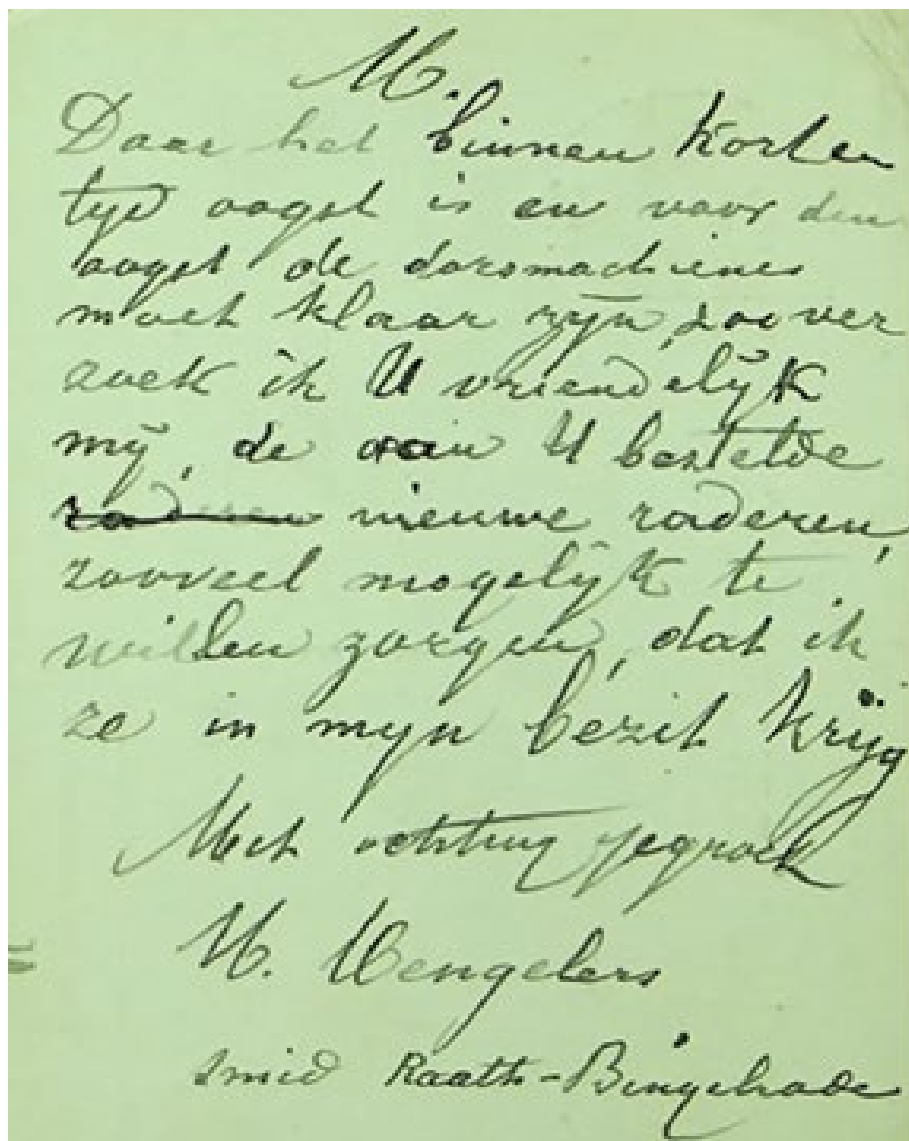 M.
Daar het binnen korten
tyd oogst is en voor den
oogst de dorsmachienes
moet klaar zijn, zoo ver
zoek ik U vriendelijk
mij, de aan U bestelde
raderen nieuwe raderen,
zooveel mogelijk te
willen zorgen, dat ik
ze in myn bezit krijg
Met achting gegroet
H. Wengelers
smid Raath-Bingelrade